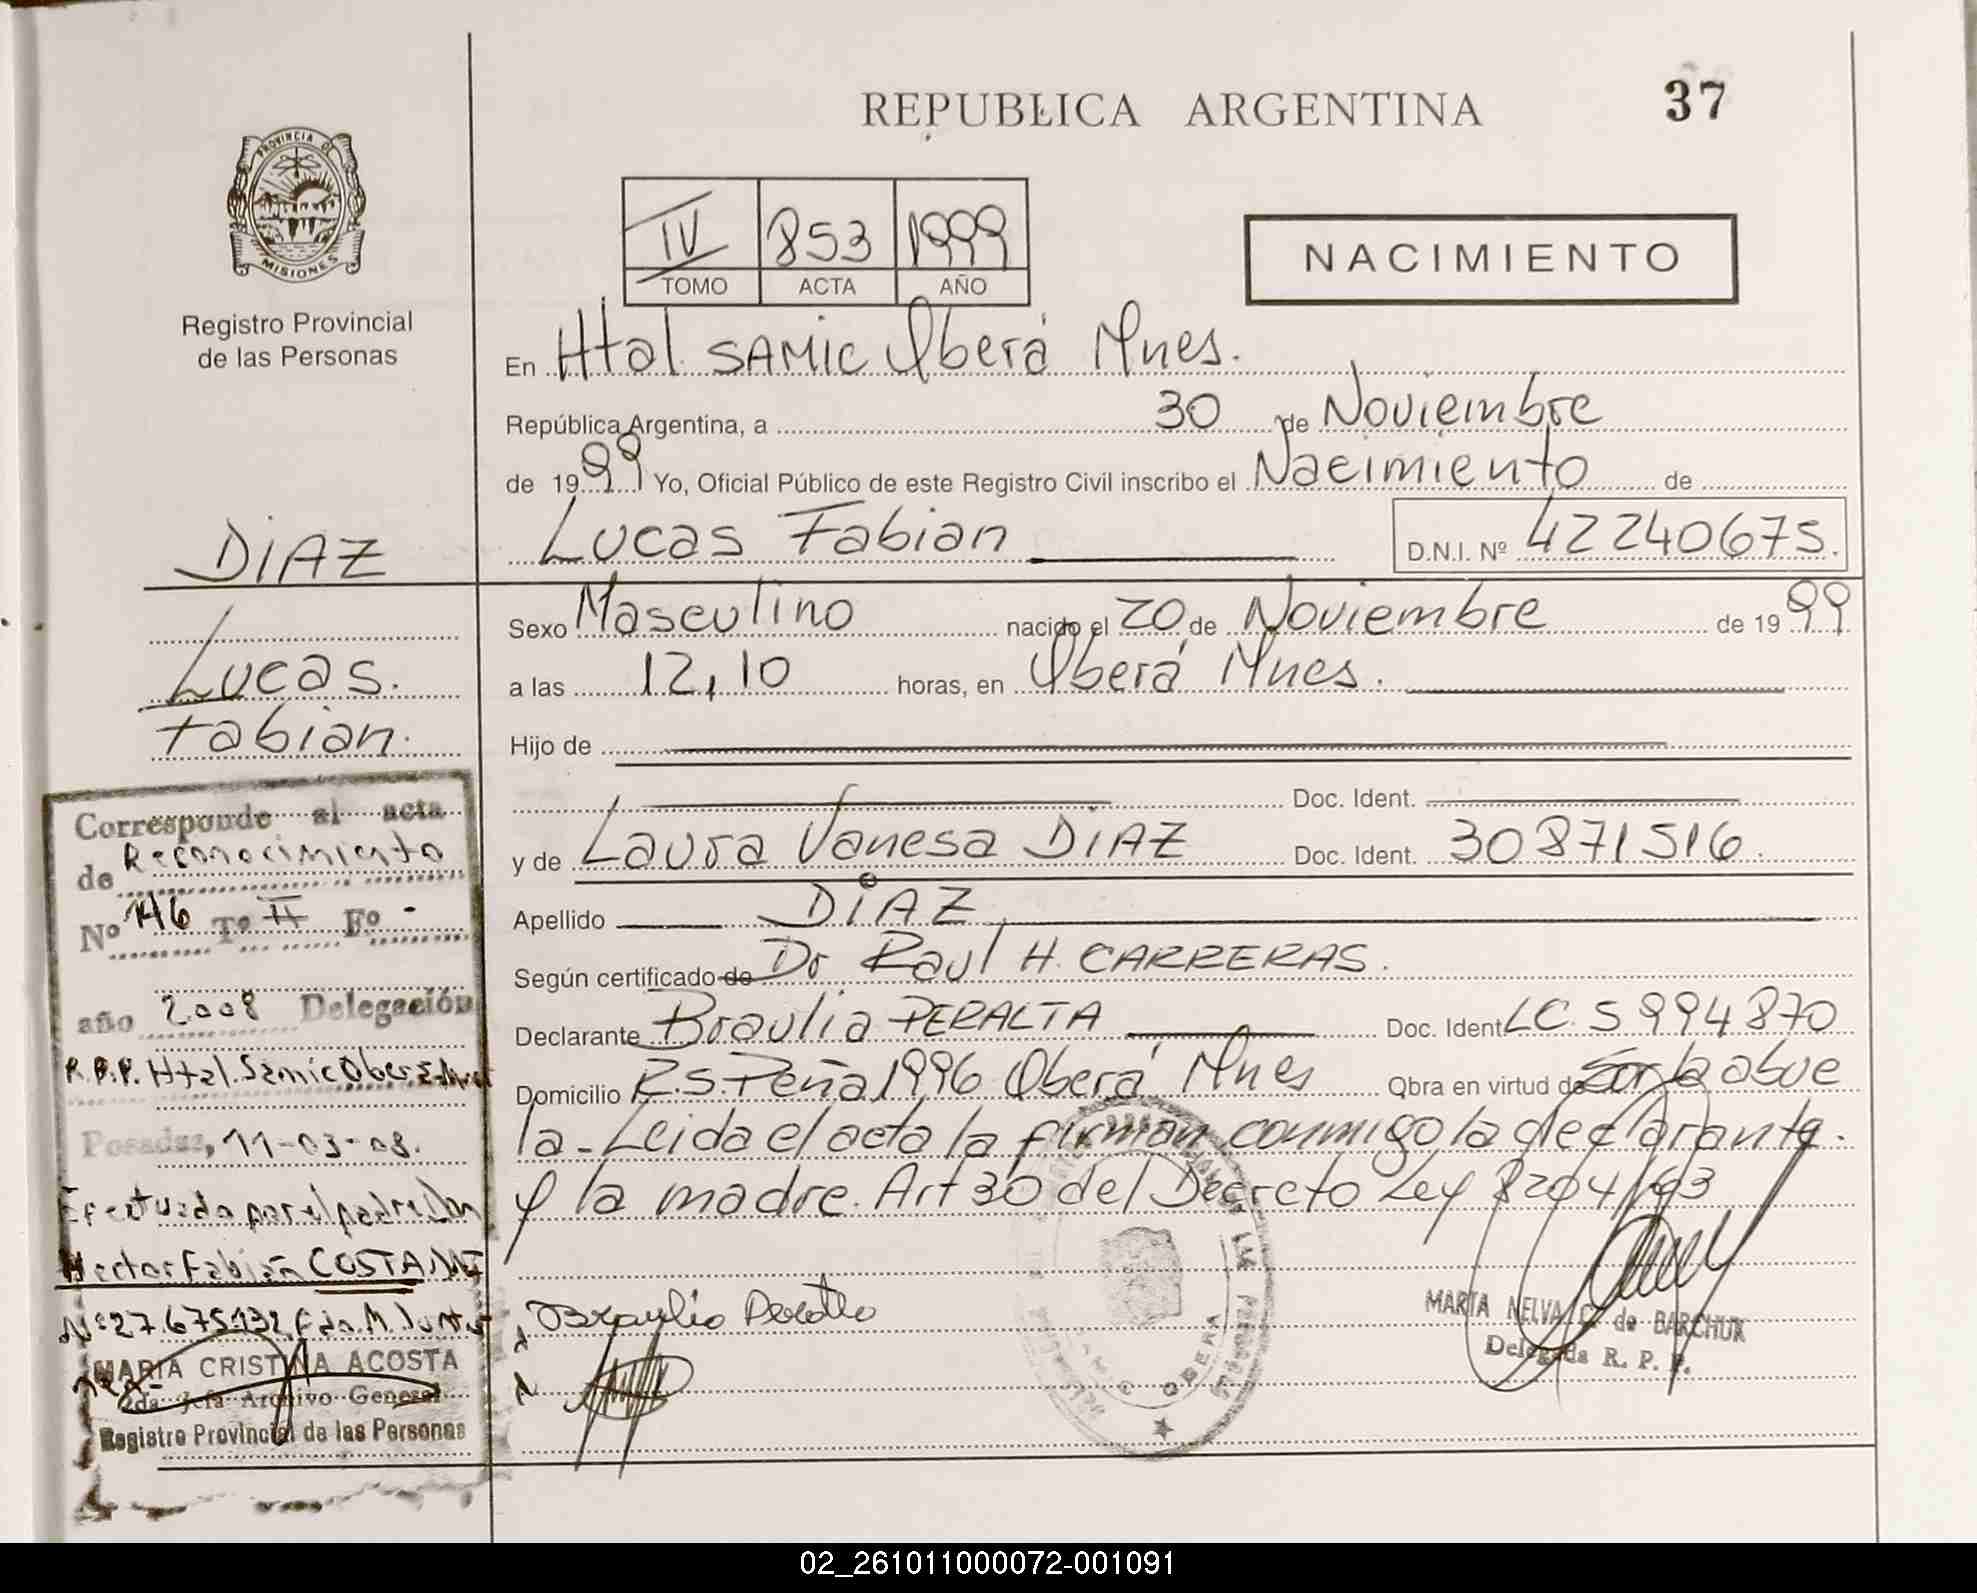 REPUBLICA ARGENTINA
37
PROVINCIA DE
MISIONES
Registro Provincial
de las Personas
IV 853 1999
TOMO ACTA AÑO
NACIMIENTO
En Htal SAMIC Oberá Mnes.
República Argentina, a 30 de Noviembre
de 1999 Yo, Oficial Público de este Registro Civil inscribo el Nacimiento de
Lucas Fabian
D.N.I. Nº 42240675.
DIAZ
Lucas.
Fabian.
Sexo Masculino nacido el 20 de Noviembre de 1999
a las 12,10 horas, en Oberá Mnes.
Hijo de
Doc. Ident.
y de Laura Vanesa DIAZ Doc. Ident. 30871516.
Apellido DIAZ
Según certificado de Dr Raul H. CARRERAS.
Declarante Braulia PERALTA Doc. Ident LC. 5994870
Domicilio R.S.Peña 1996 Oberá Mnes Obra en virtud de Ser la abue
la - Leida el acta la firman conmigo la declarante.
y la madre. Art 30 del Decreto Ley 8204/63
Corresponde al acta
de Reconocimiento
Nº 146 Tº II Fº -
año 2008 Delegación
R.P.P. Htal. Samic Oberá
Posadas, 11-03-08.
Efectuado por el padre
Hector Fabián COSTA
Nº 27.675.132
MARIA CRISTINA ACOSTA
2da Jefa Archivo General
Registro Provincial de las Personas
Braulia Peralta
OBERA
MARTA NELVA C. de BARCHUK
Delegada R. P. P.
02_261011000072-001091